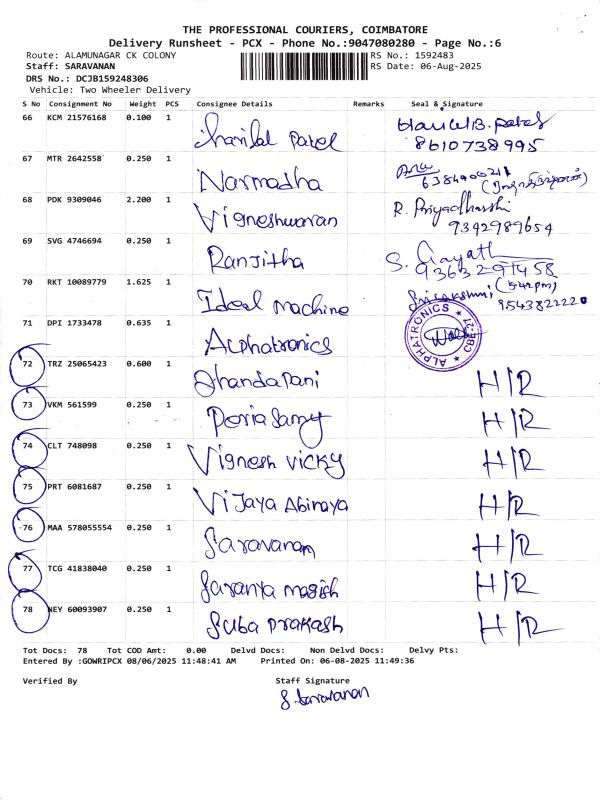 THE PROFESSIONAL COURIERS, COIMBATORE
Delivery Runsheet - PCX - Phone No.:9047080280 - Page No.:6
Route: ALAMUNAGAR CK COLONY RS No.: 1592483
Staff: SARAVANAN RS Date: 06-Aug-2025
DRS No.: DCJB159248306
Vehicle: Two Wheeler Delivery
S No Consignment No Weight PCS Consignee Details Remarks Seal & Signature
66 KCM 21576168 0.100 1 Patel B. Patel
8610738995
67 MTR 2642558 0.250 1 Narmadha
68 PDK 9309046 2.200 1 Vigneshwaran R. Priyadharshi
9342989654
69 SVG 4746694 0.250 1 Ranjitha S. Gayath
9363291458
70 RKT 10089779 1.625 1 Ideal machine (5:42pm)
9543822220
71 DPI 1733478 0.635 1 Alphatronics ALPHATRONICS CBE-27
72 TRZ 25065423 0.600 1 Dhandapani H/R
73 VKM 561599 0.250 1 Peria Samy H/R
74 CLT 748098 0.250 1 Vignesh vicky H/R
75 PRT 6081687 0.250 1 Vijaya Abinaya H/R
76 MAA 578055554 0.250 1 Saravanan H/R
77 TCG 41838040 0.250 1 Saranya magish H/R
78 NEY 60093907 0.250 1 Suba prakash H/R
Tot Docs: 78 Tot COD Amt: 0.00 Delvd Docs: Non Delvd Docs: Delvy Pts:
Entered By :GOWRIPCX 08/06/2025 11:48:41 AM Printed On: 06-08-2025 11:49:36
Verified By Staff Signature
S. Saravanan